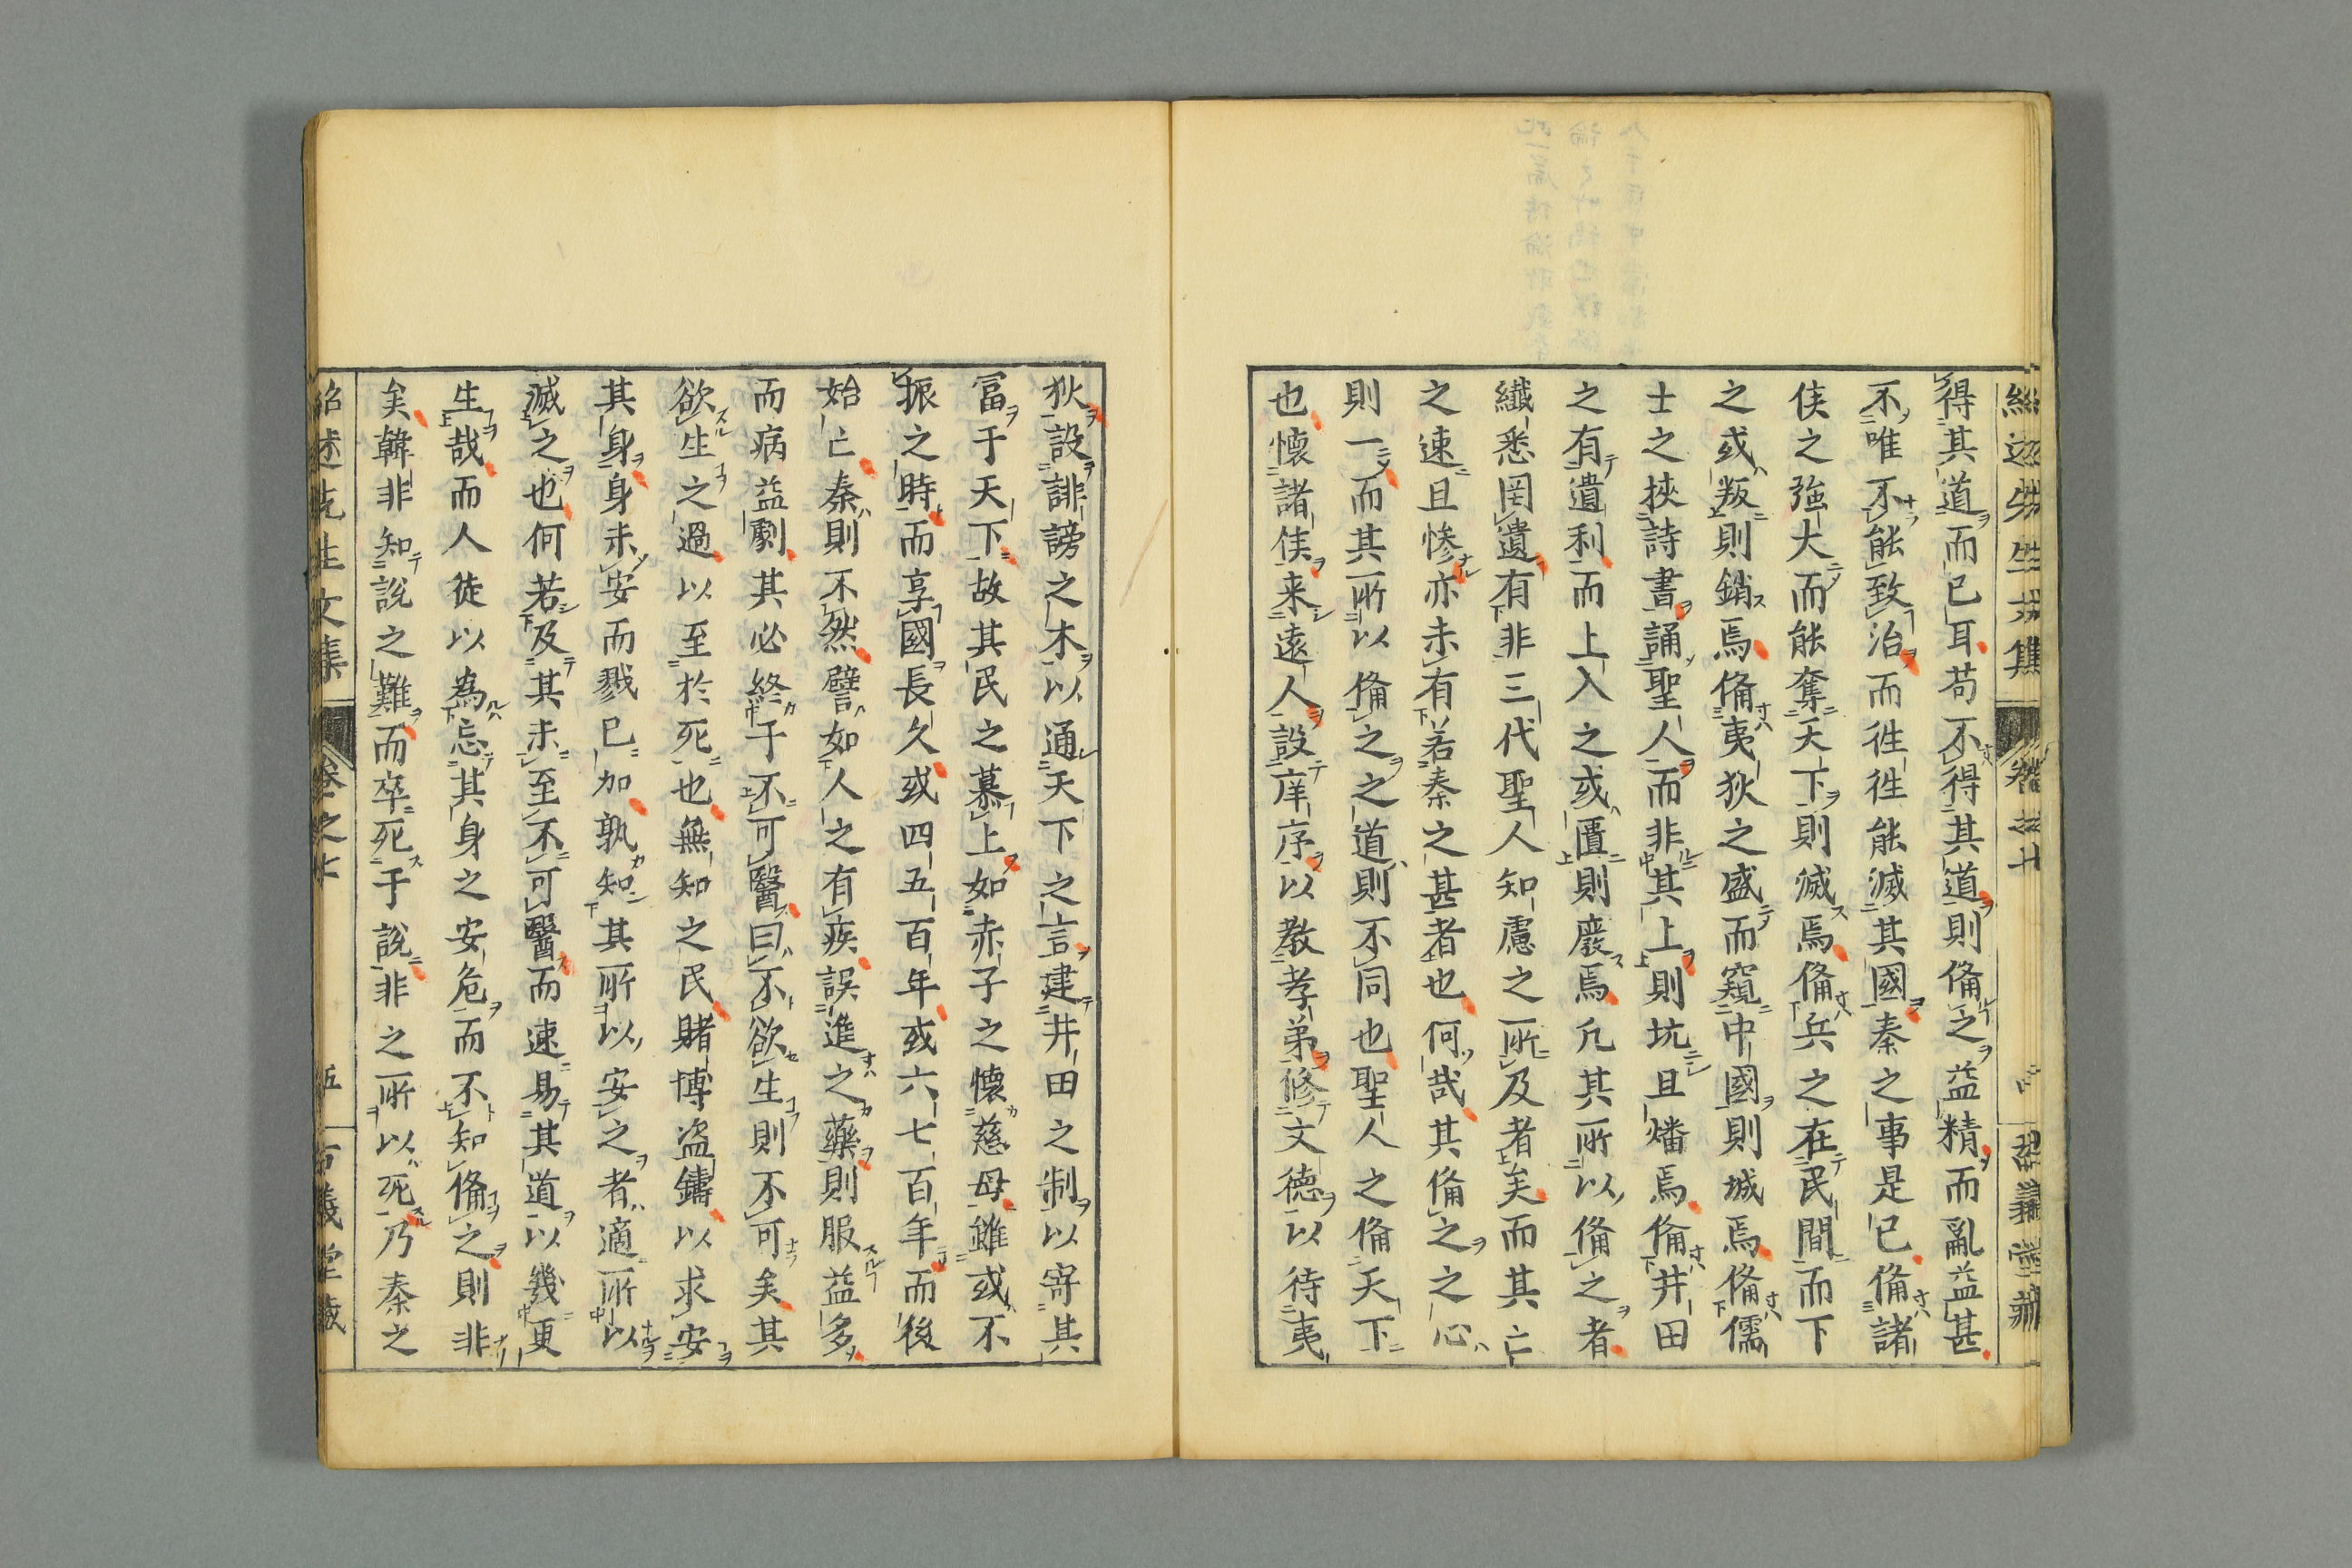 得其道而已耳苟不得其道則偹之益精而亂益甚
不唯不能致治而徃徃能滅其國秦之事是已偹諸
侯之強大而能奪天下則滅焉偹兵之在民間而下
之或叛則銷焉偹夷狄之盛而窺中國則城焉偹儒
士之挾詩書誦聖人而非其上則坑且燔焉偹井田
之有遺利而上入之或匱則廢焉凢其所以偹之者
纎悉罔遺有非三代聖人知慮之所及者矣而其亡
之速且惨亦未有若秦之甚者也何哉其偹之之心
則一而其所以偹之之道則不同也聖人之偹天下
也懐諸侯来遠人設庠序以教孝弟修文德以待夷
狄設誹謗之木以通天下之言建井田之制以寄其
冨于天下故其民之慕上如赤子之懐慈母雖或不
振之時而享國長久或四五百年或六七百年而後
始亡秦則不然譬如人之有疾誤進之藥則服益多
而病益劇其必終于不可醫曰不欲生則不可矣其
欲生之過以至於死也無知之民賭博盗鑄以求安
其身身未安而戮已加孰知其所以安之者適所以
滅之也何若及其未至不可醫而速易其道以幾更
生哉而人徒以為忘其身之安危而不知偹之則非
矣韓非知說之難而卒死于說非之所以死乃秦之
紹述先生文集
卷之七
五
古義堂藏